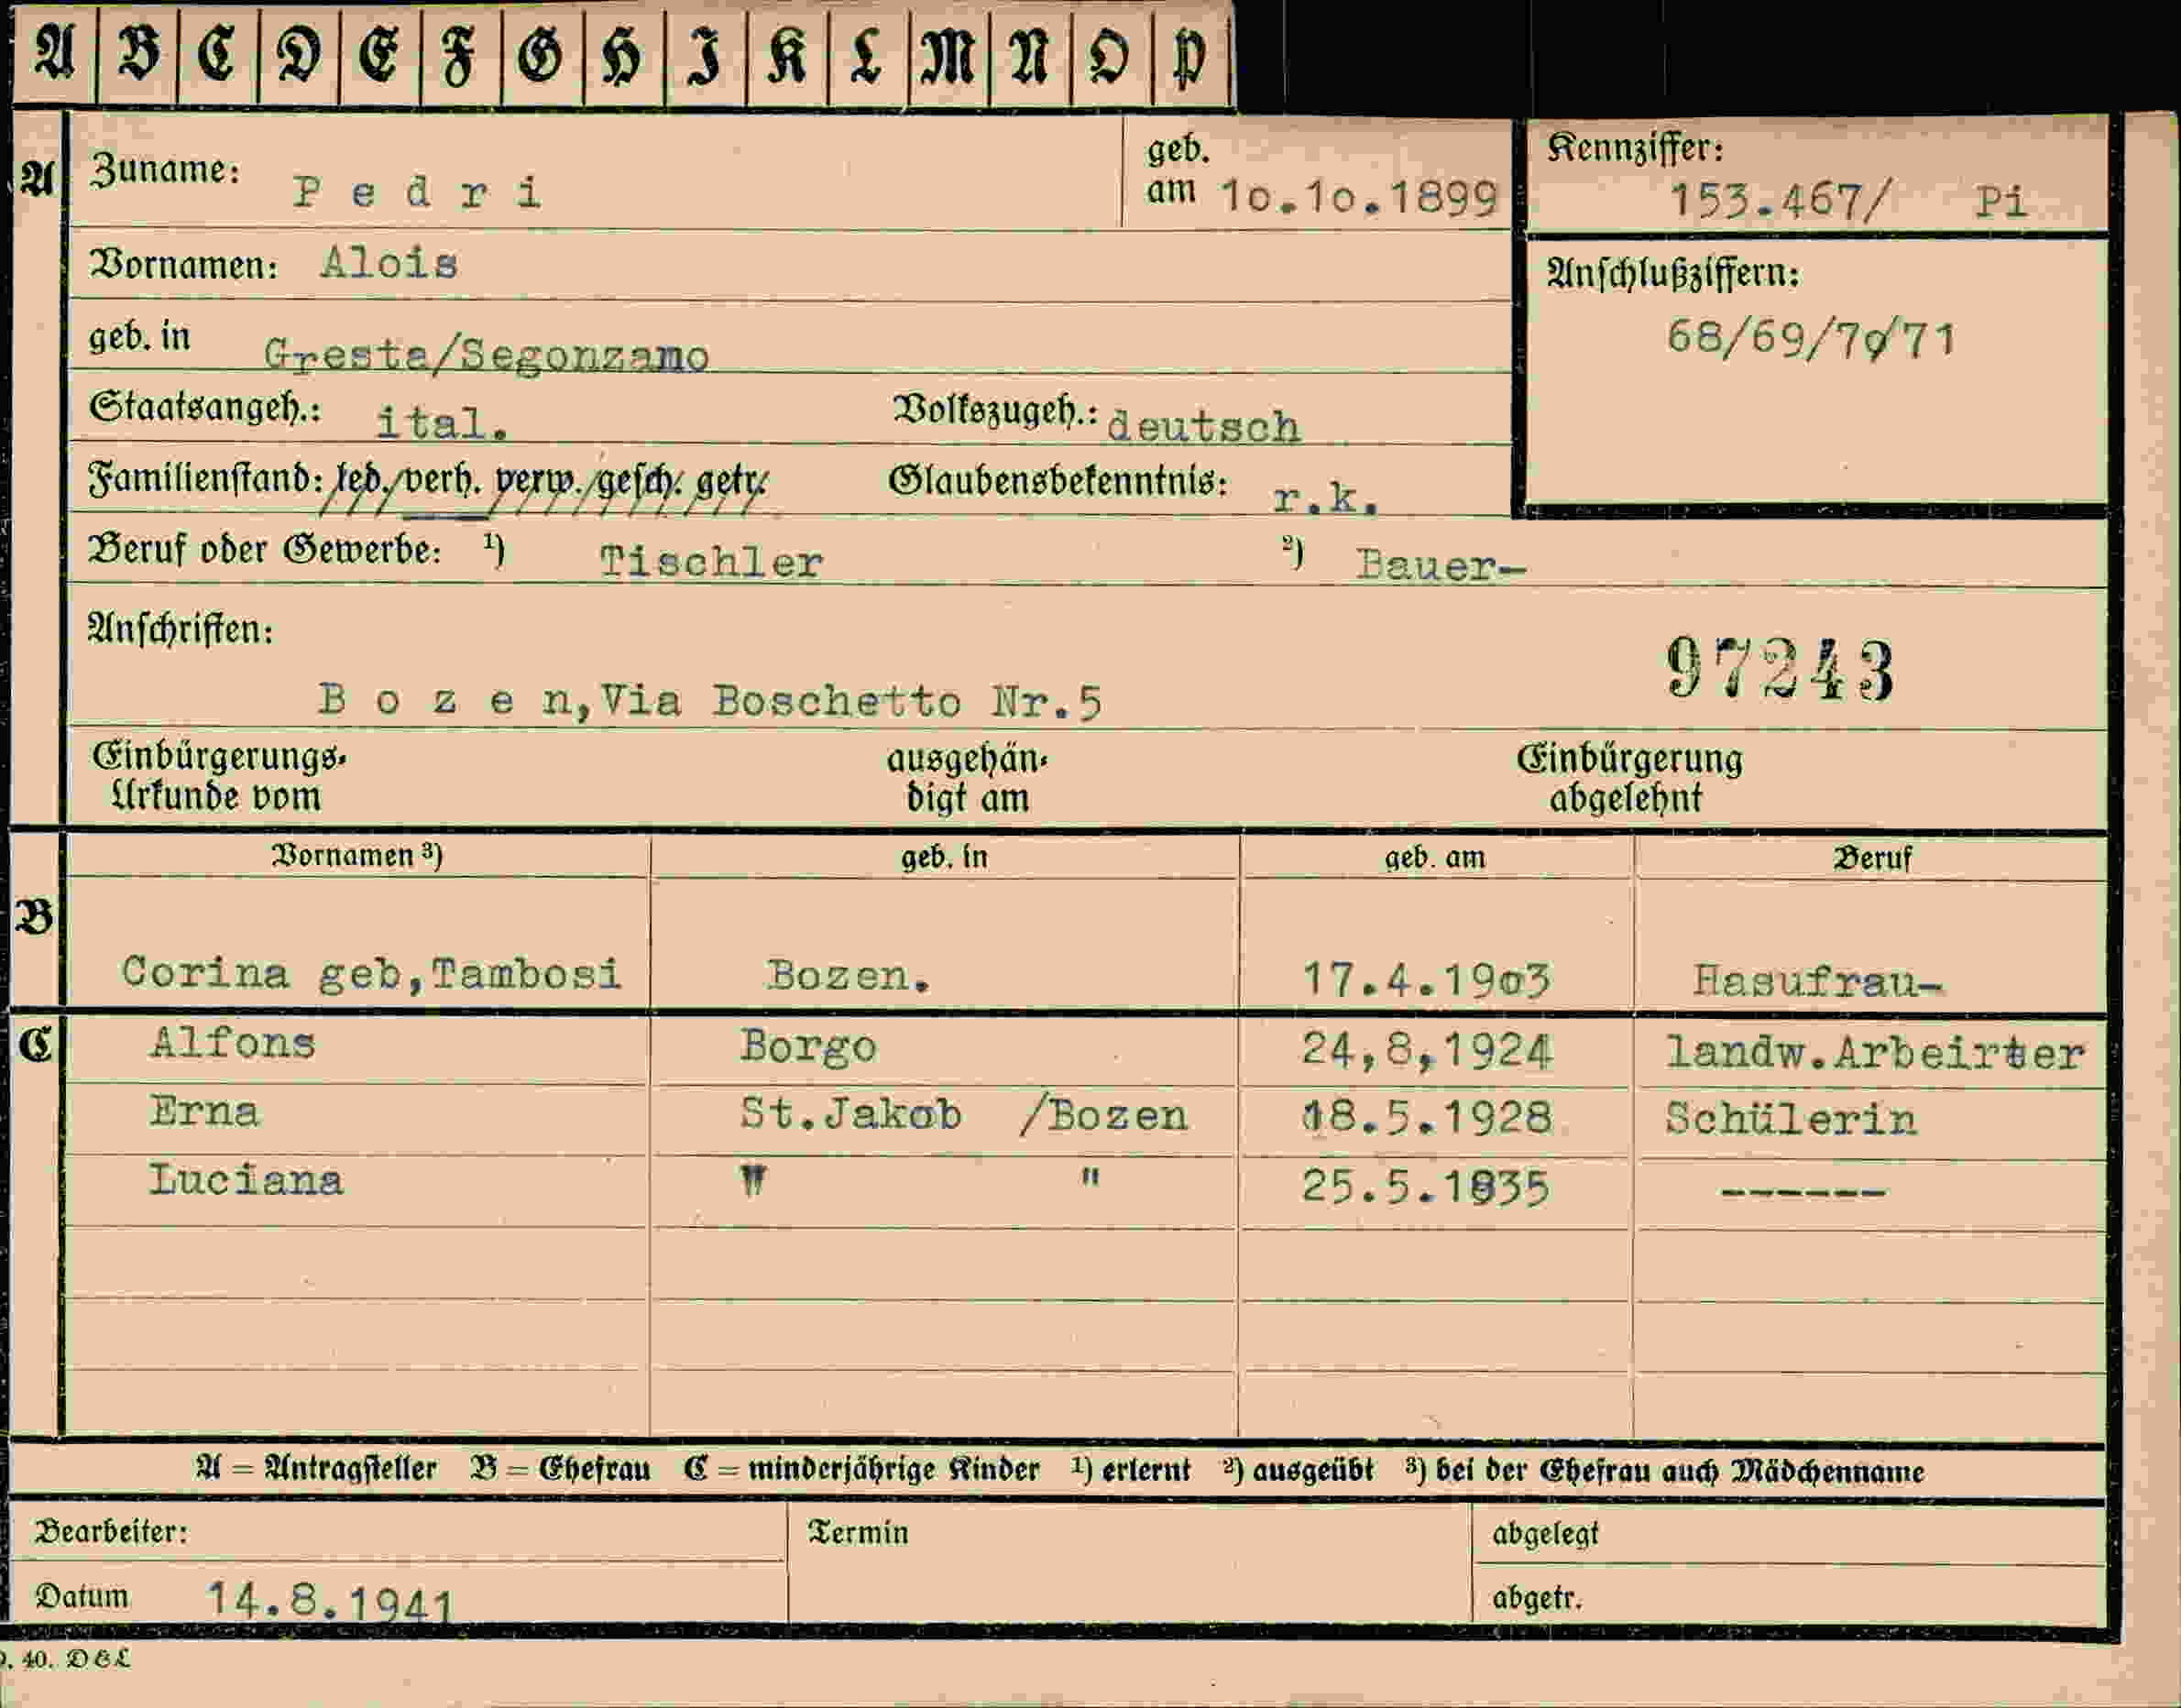 A B C D E F G H I K L M N O P
A Zuname: Pedri geb. am 10.10.1899 Kennziffer: 153.467/ Pi
Vornamen: Alois Anschlußziffern:
geb. in Gresta/Segonzano 68/69/70/71
Staatsangeh.: ital. Volkszugeh.: deutsch
Familienstand: led. verh. verw. gesch. getr. Glaubensbekenntnis: r.k.
Beruf oder Gewerbe: 1) Tischler 2) Bauer-
Anschriften: 97243
Bozen,Via Boschetto Nr.5
Einbürgerungs- ausgehän- Einbürgerung
Urkunde vom digt am abgelehnt
Vornamen 3) geb. in geb. am Beruf
B
Corina geb,Tambosi Bozen. 17.4.1903 Hasufrau-
C Alfons Borgo 24,8,1924 landw.Arbeirter
Erna St.Jakob /Bozen 18.5.1928 Schülerin
Luciana " " 25.5.1935 ------
A = Antragsteller B = Ehefrau C = minderjährige Kinder 1) erlernt 2) ausgeübt 3) bei der Ehefrau auch Mädchenname
Bearbeiter: Termin abgelegt
Datum 14.8.1941 abgetr.
40. D&L